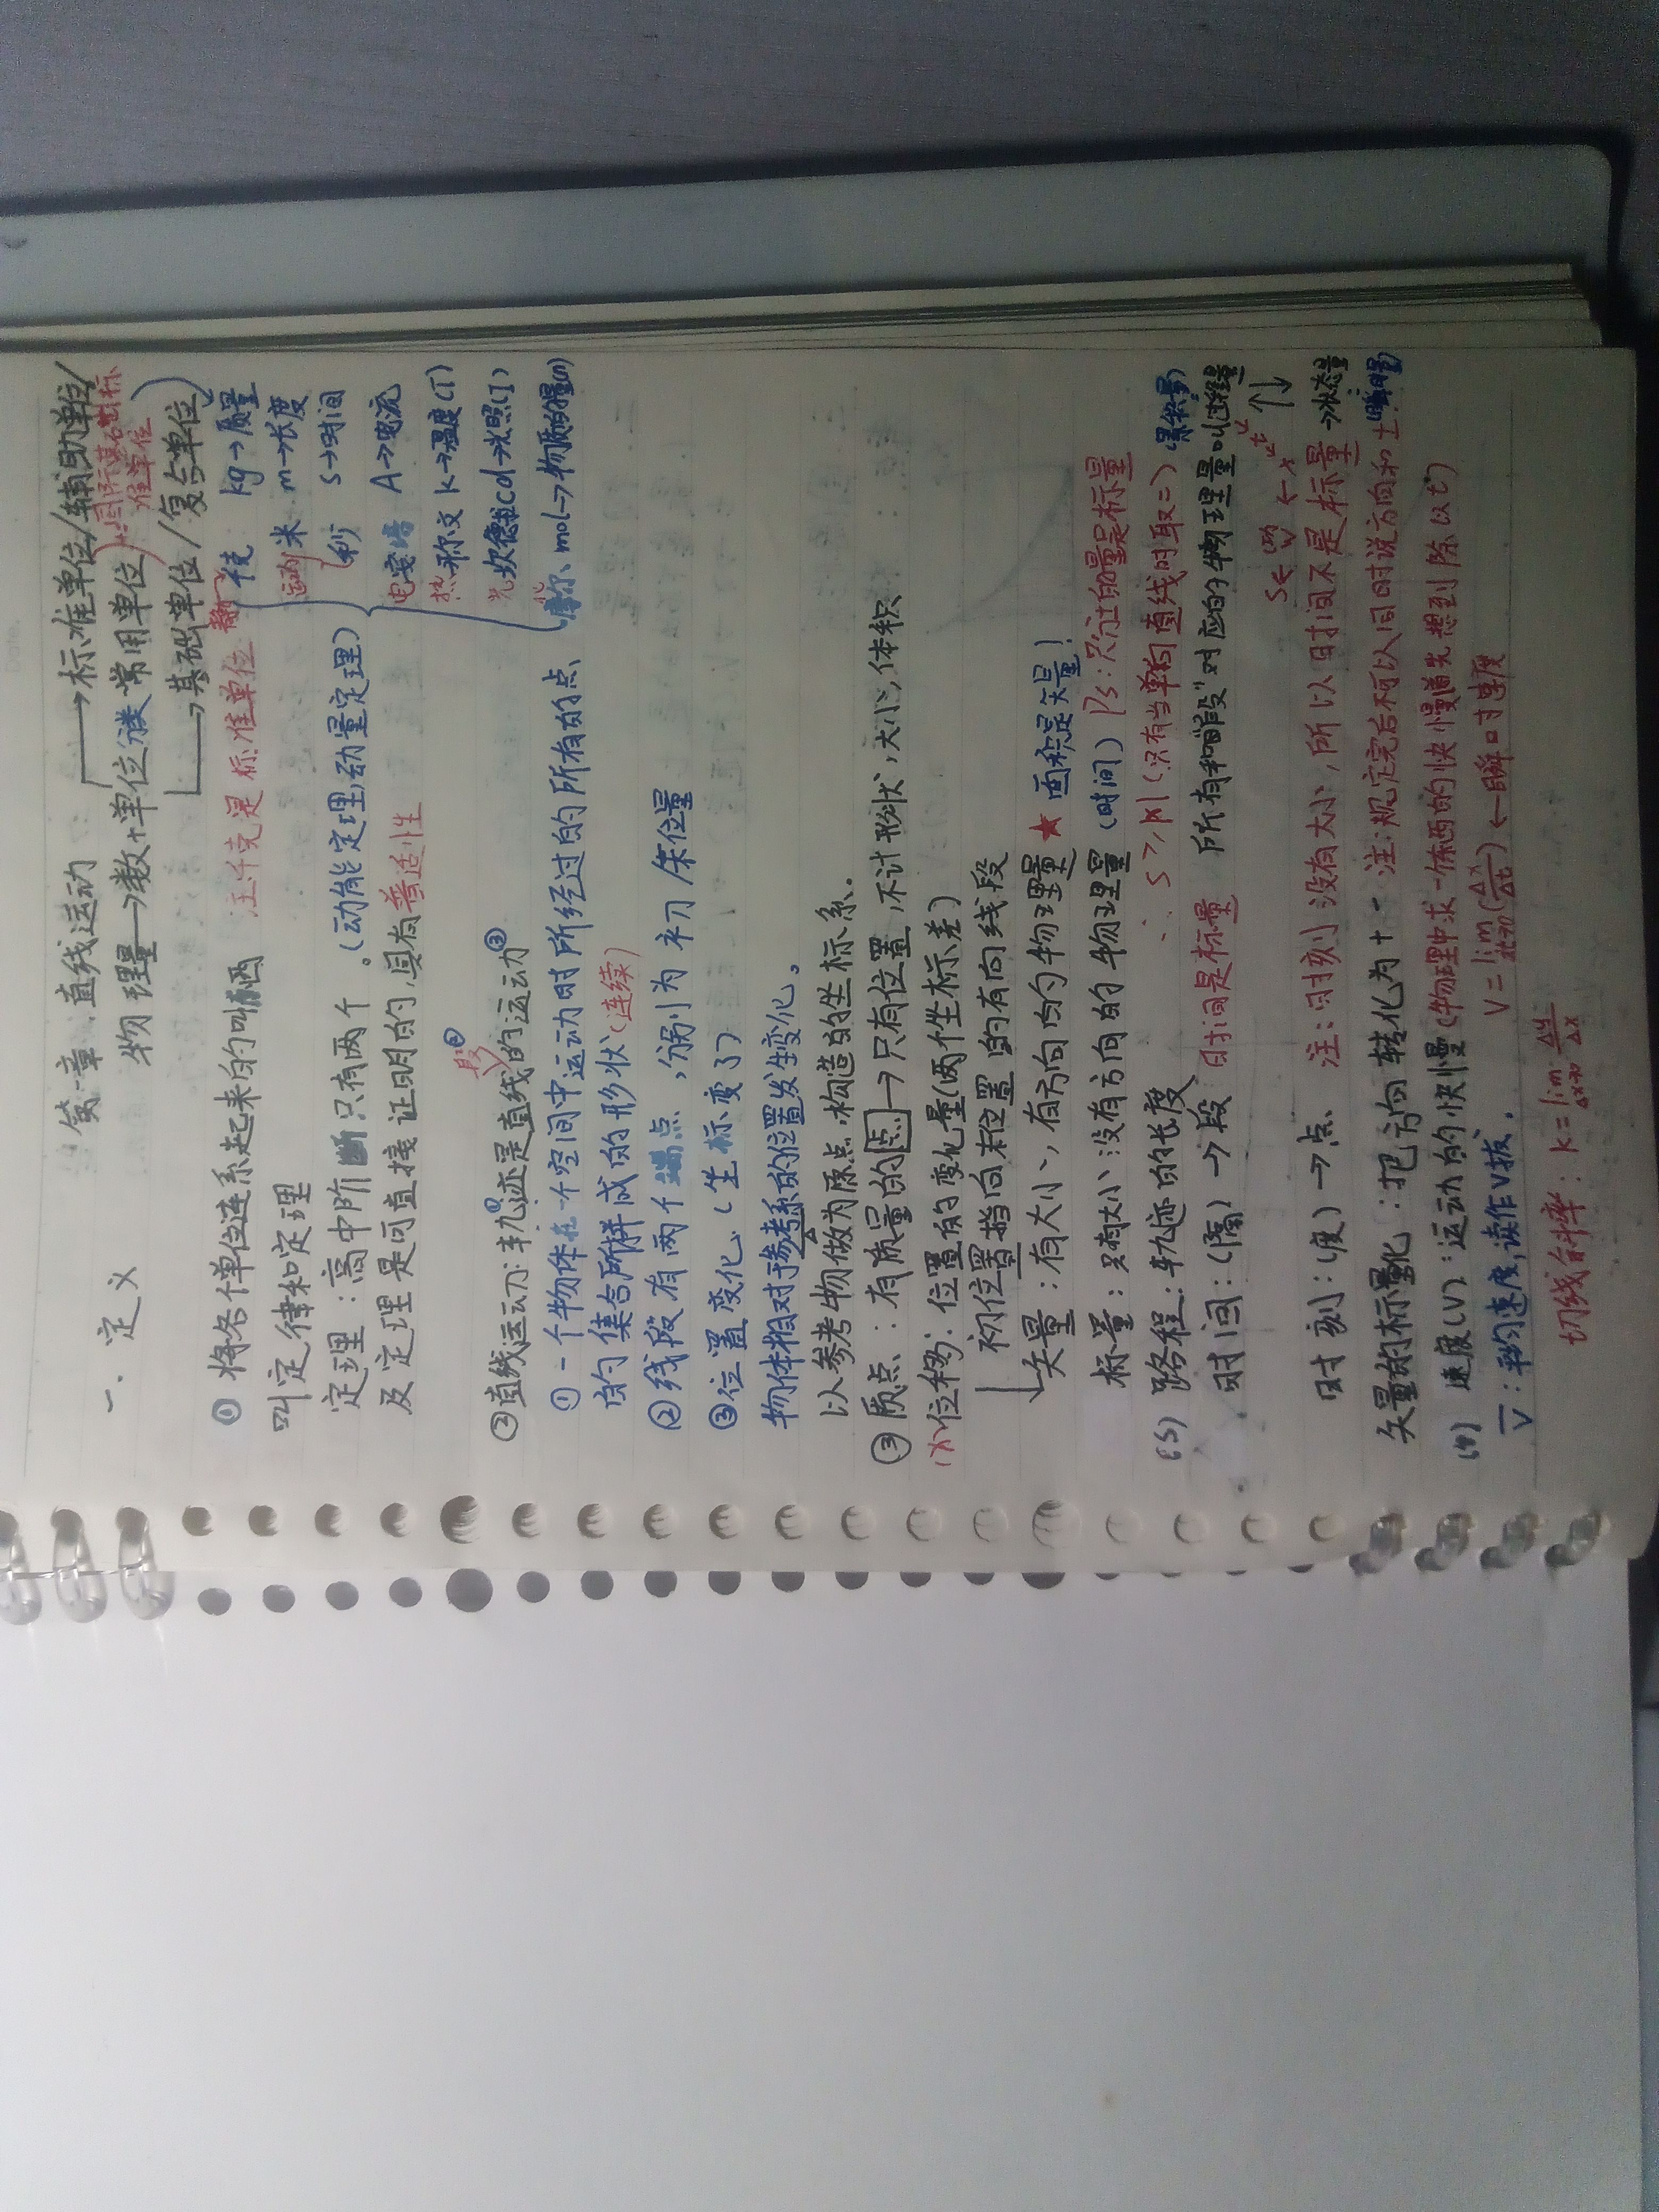 第一章:直线运动
一. 定义
物理量→数+单位
→标准单位/辅助单位/
常用单位
国际基础标
准单位
→基础单位/复合单位
注:千克是标准单位
① 将各个单位连系起来的叫
叫定律和定理
定理:高中阶断只有两个。(动能定理,动量定理)
及定理是可直接证明的,具有普适性
千克 kg→质量
米 m→长度
秒 s→时间
电 安培 A→电流
热 k→温度(T)
光 坎德拉cd→光照(I)
化 摩尔 mol→物质的量(n)
②直线运动:轨迹①是直线②的运动③
段
① 一个物体在一个空间中运动时所经过的所有的点
的集合所样成的形状(连续)
②线段有两个端点,分别为初/末位置
③位置变化(坐标变了)
物体相对于参考系的位置发生变化。
以参考物做为原点构造的坐标系.
③ 质点:有质量的点→只有位置,不计形状,大小,体积
(x)位移:位置的变化量(两个坐标差)
初位置指向末位置的有向线段
矢量:有大小,有方向的物理量★ 面积是矢量!
标量:只有大小没有方向的物理量(时间) Ps:只有大小的量是标量
(S) 路程:轨迹的长度 ∴ S≥|x|(只有当单向直线时取=)
时间:(隔)→段 时间是标量 所有和“段”对应的物理量叫过程量
时刻:(度)→点 注:时刻没有大小,所以时间不是标量→状态量
矢量的标量化:把方向转化为+- 注:规定完后不可以同时说方向和±
(v) 速度(V):运动的快慢(物理中求一东西的快慢首先想到除以t)
V̄:平均速度,读作V拔. V=lim Δt→0 (Δx/Δt)←瞬时速度
切线斜率:k=lim Δx→0 Δy/Δx